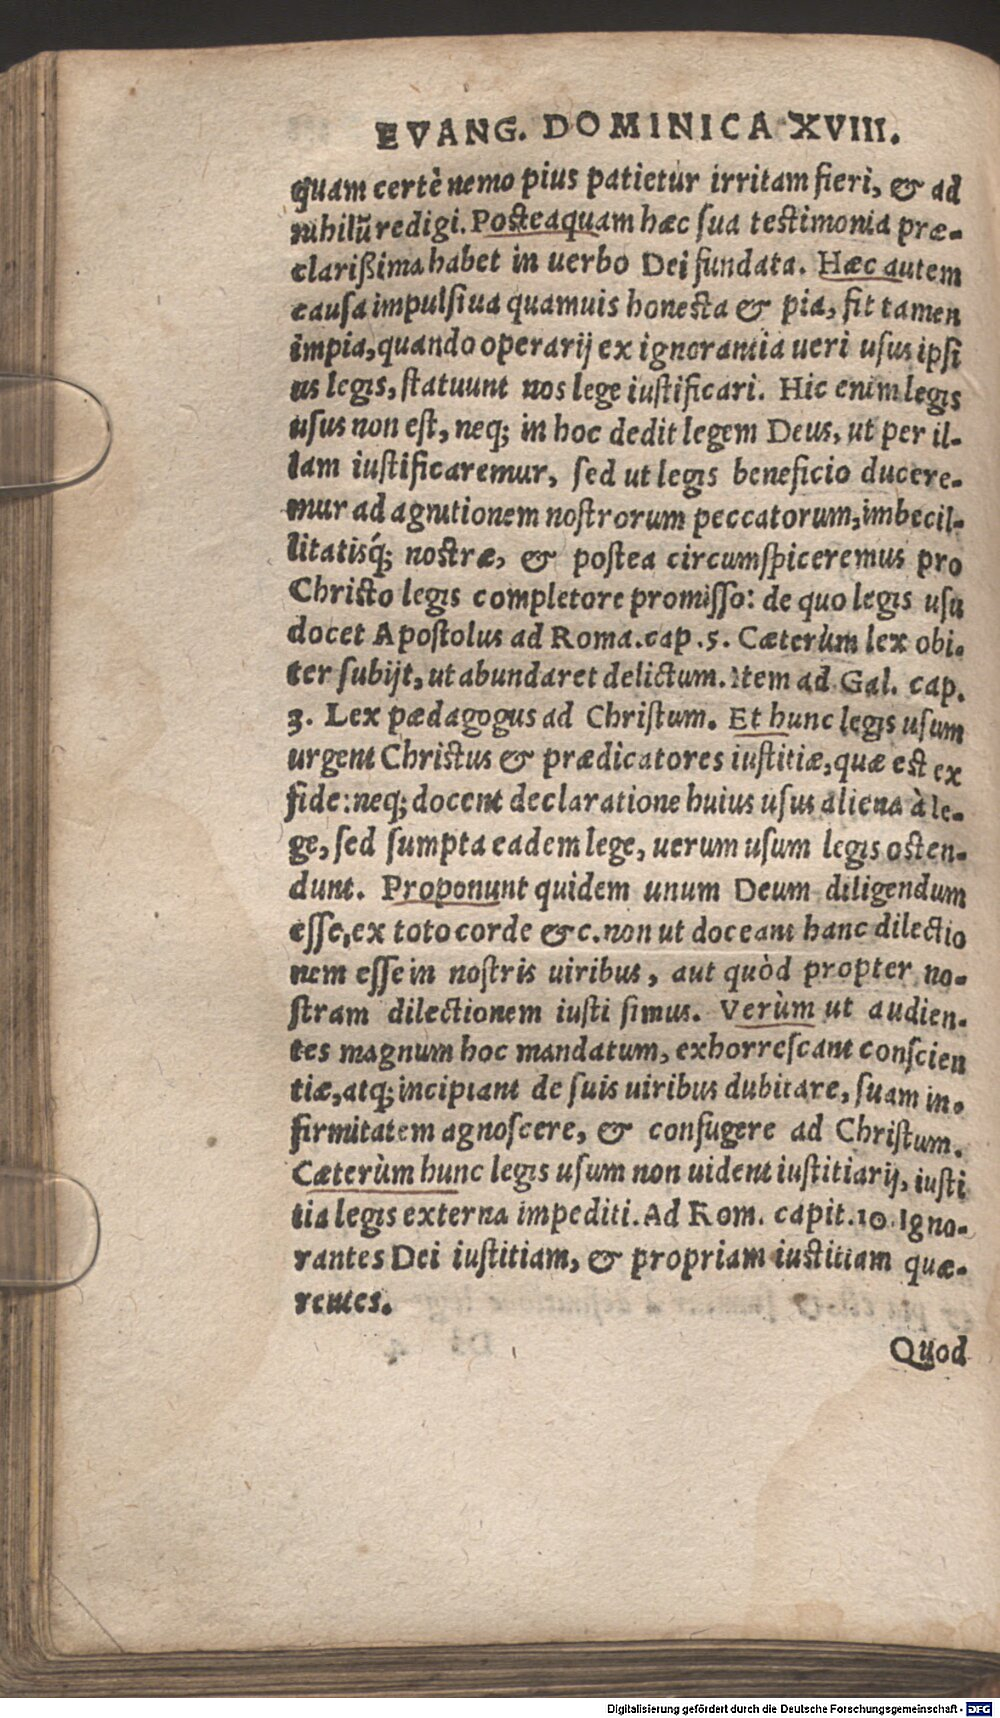 EVANG. DOMINICA XVIII.
quam certè nemo pius patietur irritam fieri, & ad
nihilū redigi. Posteaquam hæc sua testimonia præ-
clarißima habet in uerbo Dei fundata. Hæc autem
causa impulsiua quamuis honesta & pia, fit tamen
impia, quando operarij ex ignorantia ueri usus ipsi
us legis, statuunt nos lege iustificari. Hic enim legis
usus non est, neq; in hoc dedit legem Deus, ut per il-
lam iustificaremur, sed ut legis beneficio ducere-
mur ad agnitionem nostrorum peccatorum, imbecil-
litatisq́; nostræ, & postea circumspiceremus pro
Christo legis completore promisso: de quo legis usu
docet Apostolus ad Roma. cap. 5. Cæterùm lex obi-
ter subijt, ut abundaret delictum. Item ad Gal. cap.
3. Lex pædagogus ad Christum. Et hunc legis usum
urgent Christus & prædicatores iustitiæ, quæ est ex
fide: neq; docent declaratione huius usus aliena à le-
ge, sed sumpta eadem lege, uerum usum legis osten-
dunt. Proponunt quidem unum Deum diligendum
esse, ex toto corde &c. non ut doceant hanc dilectio
nem esse in nostris uiribus, aut quòd propter no-
stram dilectionem iusti simus. Verùm ut audien-
tes magnum hoc mandatum, exhorrescant conscien
tiæ, atq; incipiant de suis uiribus dubitare, suam in-
firmitatem agnoscere, & confugere ad Christum.
Cæterùm hunc legis usum non uident iustitiarij, iusti
tia legis externa impediti. Ad Rom. capit. 10. Igno-
rantes Dei iustitiam, & propriam iustitiam quæ-
rentes.
Quod
Digitalisierung gefördert durch die Deutsche Forschungsgemeinschaft - DFG